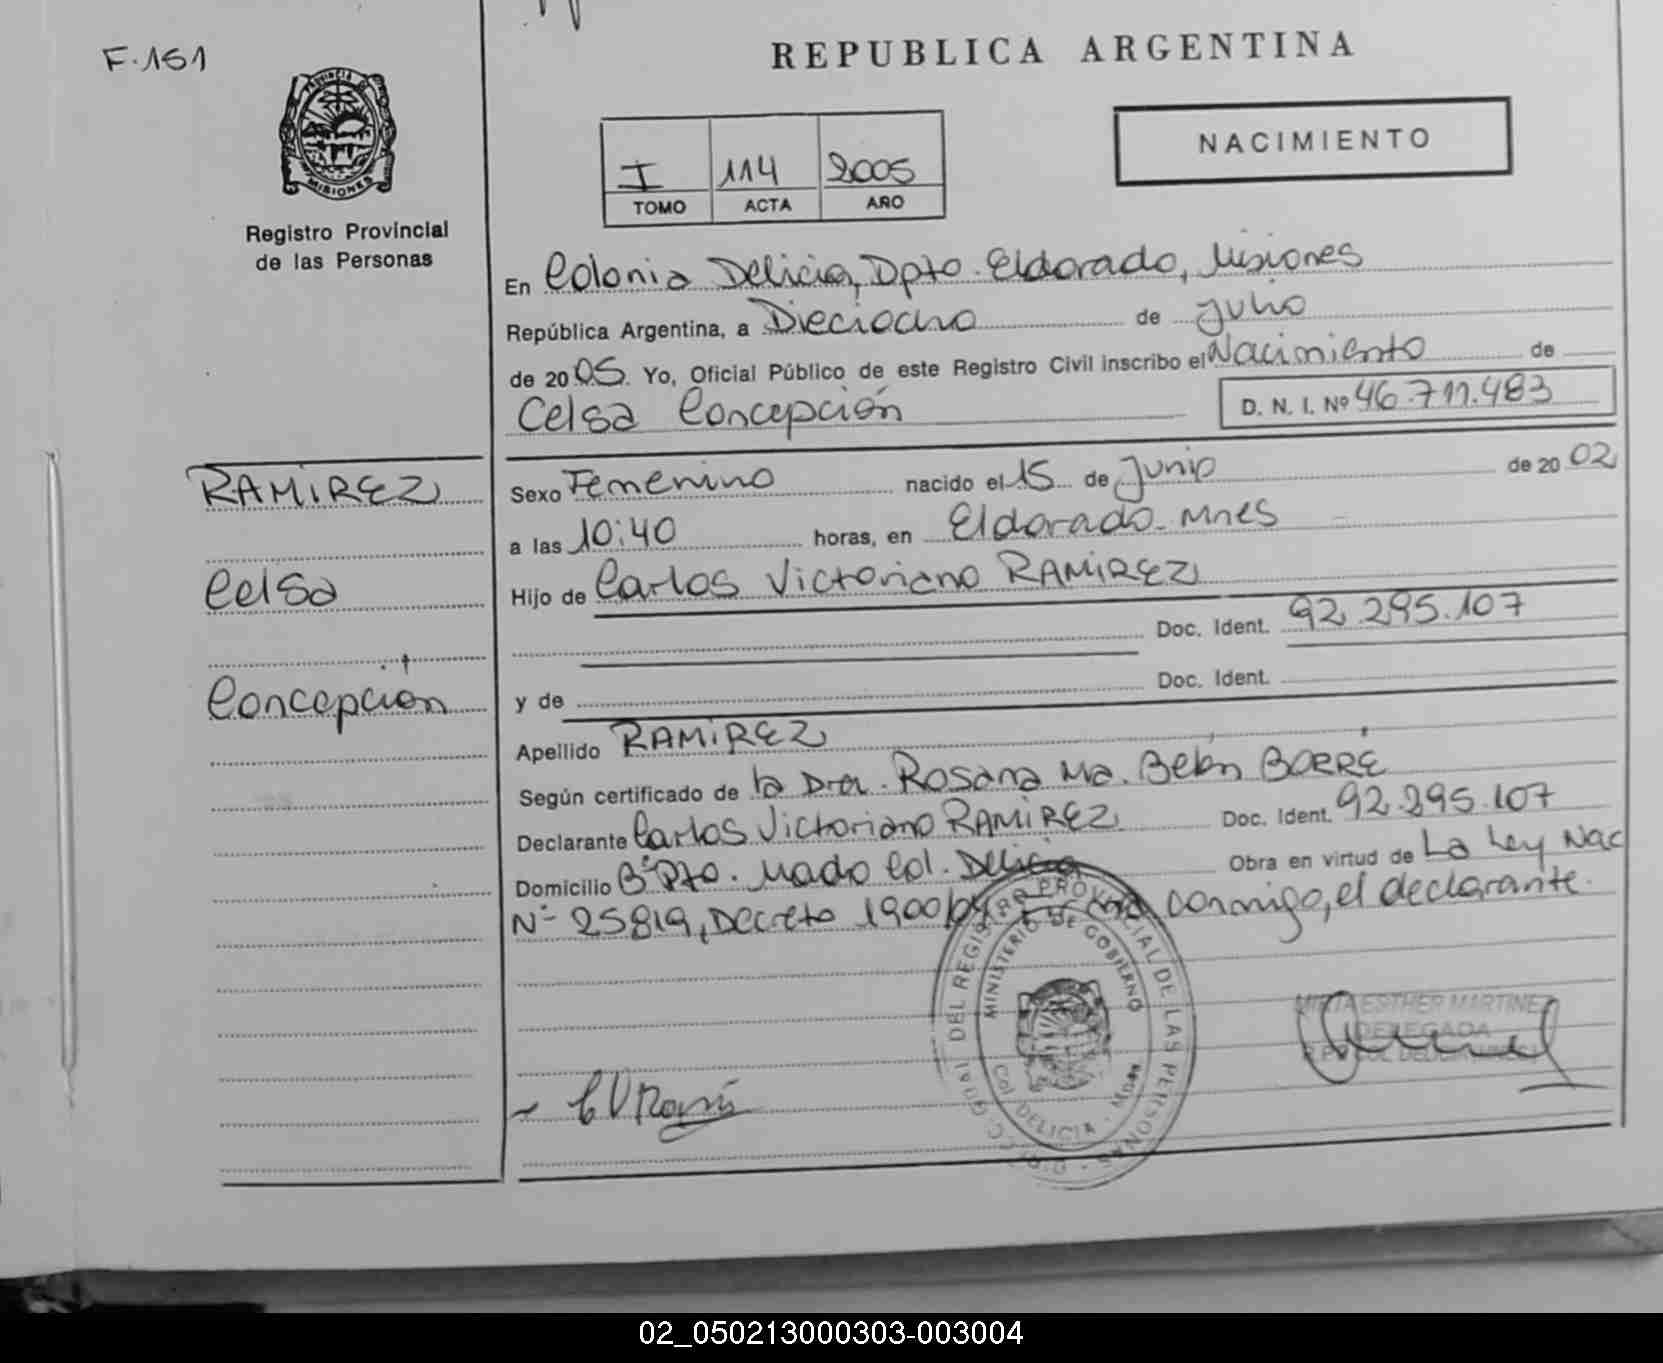 F. 151
REPUBLICA ARGENTINA
PROVINCIA DE
MISIONES
Registro Provincial
de las Personas
I 114 2005
TOMO ACTA AÑO
NACIMIENTO
En Colonia Delicia, Dpto. Eldorado, Misiones
República Argentina, a Dieciocho de Julio
de 2005. Yo, Oficial Público de este Registro Civil inscribo el Nacimiento de
Celsa Concepción D. N. I. Nº 46.711.483
RAMIREZ
Celsa
Concepción
Sexo Femenino nacido el 15 de Junio de 2002
a las 10:40 horas, en Eldorado - Mnes
Hijo de Carlos Victoriano RAMIREZ
Doc. Ident. 92.295.107
y de Doc. Ident.
Apellido RAMIREZ
Según certificado de la Dra. Rosana Ma. Belén BORRÉ
Declarante Carlos Victoriano RAMIREZ Doc. Ident. 92.295.107
Domicilio Bº Pto. Mado Col. Delicia Obra en virtud de La Ley Nac
Nº 25819, Decreto 1900 conmigo, el declarante.
DEL REGISTRO PROVINCIAL DE LAS PERSONAS
MINISTERIO DE GOBIERNO
Col. DELICIA
MIRTA ESTHER MARTINEZ
DELEGADA
02_050213000303-003004